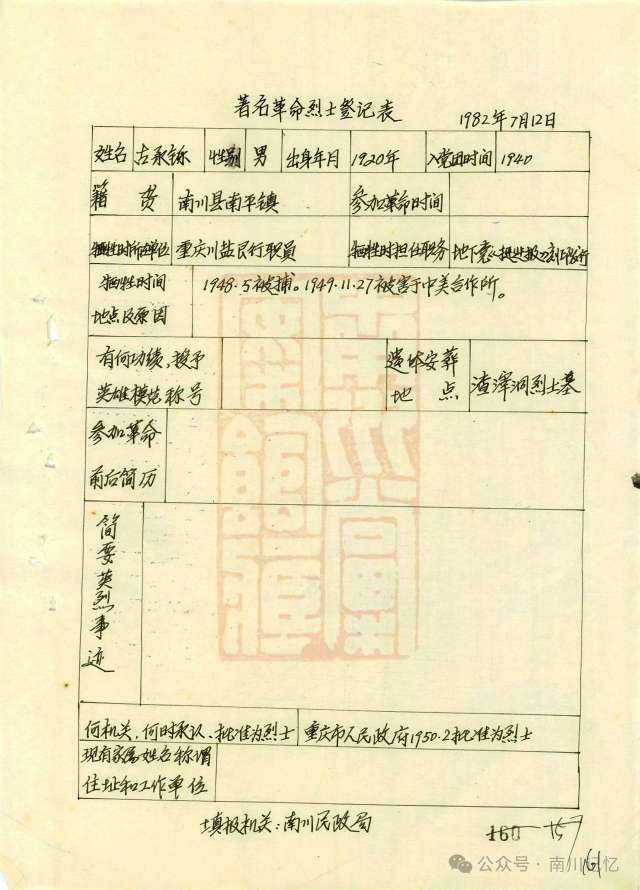 著名革命烈士登记表 1982年7月12日
姓名 古承铄 性别 男 出身年月 1920年 入党团时间 1940
籍贯 南川县南平镇 参加革命时间
牺牲时所在单位 重庆川盐民行职员 牺牲时担任职务 地下党《挺进报》
牺牲时间 1948.5被捕。1949.11.27被害于中美合作所。
地点及原因
有何功绩,授予 遗体安葬
英雄模范称号 地点 渣滓洞烈士墓
参加革命
前后简历
简要英烈事迹
何机关、何时承认、批准为烈士 重庆市人民政府1950.2批准为烈士
现有家属姓名称谓
住址和工作单位
填报机关:南川民政局
160 157
公众号·南川记忆